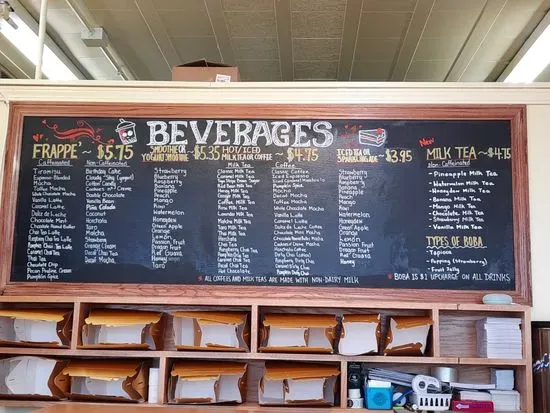 BEVERAGES
FRAPPE' ~ $5.75
Caffeinated
Tiramisu
Espresso-Blended
Mocha
Toffee Mocha
White Chocolate Mocha
Vanilla Latte
Caramel Latte
Dulce de Leche
Chocolate Mint
Chocolate Peanut Butter
Chai Tea
Raspberry Chai Tea Latte
Pumpkin Chai Tea Latte
Caramel Chai Tea
Thai Tea
Chocolate Chip
Pecan Praline Cream
Pumpkin Spice
Non-Caffeinated
Birthday Cake
Cotton Candy
Cookies n' Creme
Double Chocolate
Vanilla Bean
Piña Colada
Coconut
Horchata
Taro
Matcha
Strawberry
Orange Cream
Decaf Mocha
SMOOTHIE OR
YOGURT SMOOTHIE ~ $5.35
Strawberry
Blueberry
Raspberry
Banana
Pineapple
Peach
Mango
Kiwi
Watermelon
Honeydew
Green Apple
Orange
Lemon
Passion Fruit
Dragon Fruit
Red Guava
Honey Dew
Taro
HOT/ICED
MILK TEA OR COFFEE ~ $4.75
Milk Tea
Classic Milk Tea
Caramel Milk Tea
Thai Milk Tea
Honey Milk Tea
Coconut Milk Tea
Mango Milk Tea
Rose Milk Tea
Lavender Milk Tea
Matcha Milk Tea
Taro Milk Tea
Horchata
Chai Tea
Raspberry Chai Tea
Caramel Chai Tea
Pumpkin Chai Tea
Decaf Chai Tea
Hot Chocolate
Coffee
Classic Coffee
Iced Espresso
Pumpkin Spice
Mocha
Decaf Mocha
Toffee Mocha
White Chocolate Mocha
Vanilla Latte
Caramel Latte
Dulce de Leche Coffee
Chocolate Mint Mocha
Chocolate Peanut Butter Mocha
Caramel Dirty Chai
Pumpkin Dirty Chai
ICED TEA OR
SPARKLING ADE ~ $3.95
Strawberry
Blueberry
Raspberry
Banana
Pineapple
Peach
Mango
Kiwi
Watermelon
Honeydew
Green Apple
Orange
Lemon
Passion Fruit
Dragon Fruit
Red Guava
Coconut
Honey
New
MILK TEA ~ $4.75
Non-Caffeinated
- Pineapple Milk Tea
- Watermelon Milk Tea
- Honeydew Milk Tea
- Banana Milk Tea
- Mango Milk Tea
- Chocolate Milk Tea
- Strawberry Milk Tea
- Vanilla Milk Tea
TYPES OF BOBA
- Tapioca
- Popping (Strawberry)
- Fruit Jelly
* ALL COFFEES AND MILK TEAS ARE MADE WITH NON-DAIRY MILK
* BOBA IS $1 UPCHARGE ON ALL DRINKS